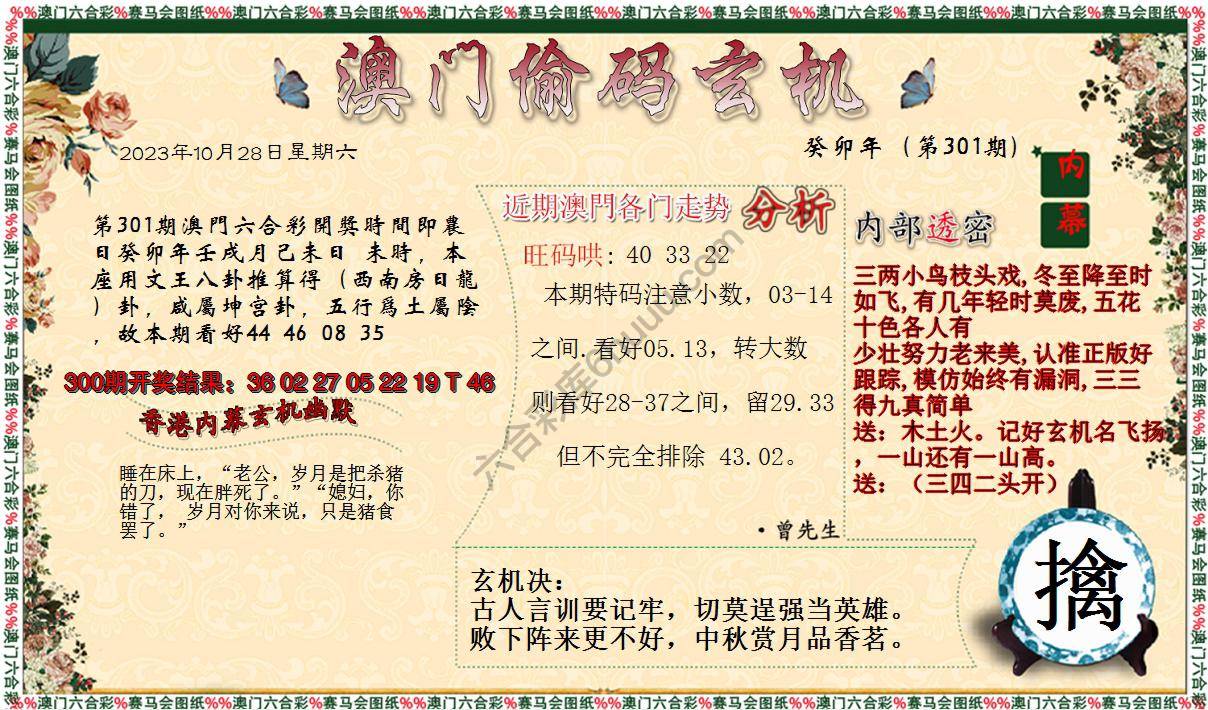 %%澳门六合彩%赛马会图纸%%澳门六合彩%赛马会图纸%%澳门六合彩%赛马会图纸%%澳门六合彩%赛马会图纸%%澳门六合彩%赛马会图纸%%澳门六合彩%赛马会图纸%%
澳门偷码玄机
2023年10月28日星期六
癸卯年（第301期）
内
幕
第301期澳門六合彩開獎時間即農
日癸卯年壬戌月己未日 未時，本
座用文王八卦推算得（西南房日龍
）卦，咸屬坤宫卦，五行爲土屬陰
，故本期看好44 46 08 35
300期开奖结果：36 02 27 05 22 19 T 46
香港内幕玄机幽默
睡在床上，“老公，岁月是把杀猪
的刀，现在胖死了。”“媳妇，你
错了， 岁月对你来说，只是猪食
罢了。”
近期澳門各门走势 分析
旺码哄: 40 33 22
本期特码注意小数，03-14
之间.看好05.13，转大数
则看好28-37之间，留29.33
但不完全排除 43.02。
·曾先生
内部透密
三两小鸟枝头戏,冬至降至时
如飞,有几年轻时莫废,五花
十色各人有
少壮努力老来美,认准正版好
跟踪,模仿始终有漏洞,三三
得九真简单
送：木土火。记好玄机名飞扬
，一山还有一山高。
送：（三四二头开）
玄机决：
古人言训要记牢，切莫逞强当英雄。
败下阵来更不好，中秋赏月品香茗。
擒
%%澳门六合彩%赛马会图纸%%澳门六合彩%赛马会图纸%%澳门六合彩%赛马会图纸%%澳门六合彩%赛马会图纸%%澳门六合彩%赛马会图纸%%澳门六合彩%赛马会图纸%%